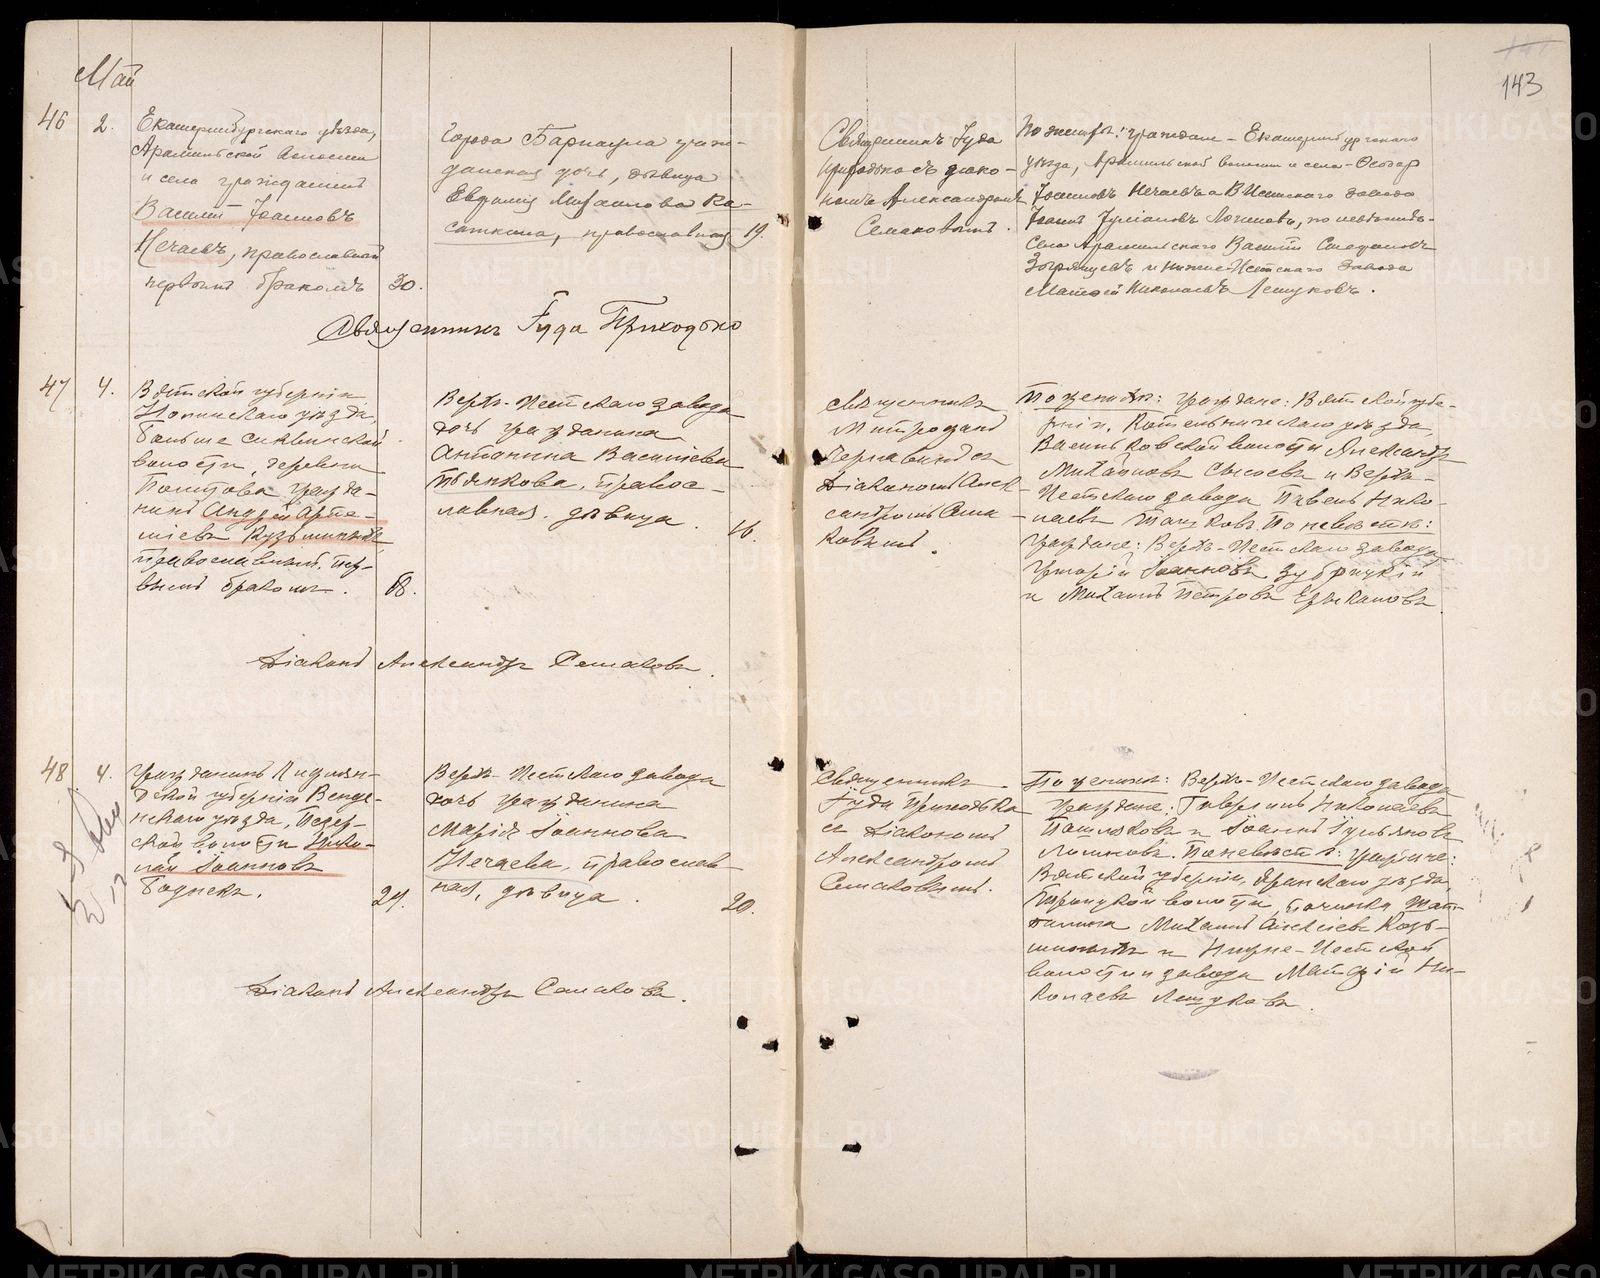 Май
143
46
2.
Екатеринбургскаго уѣзда,
Арамильской волости
и села гражданинъ
Василій Іоанновъ
Нечаевъ, православный
первымъ бракомъ
30.
Города Барнаула граж-
данская дочь, дѣвица
Евдокія Михайлова Ка-
саткина, православная
19.
Священникъ Іуда
Приходько съ діако-
номъ Александромъ
Семаковымъ.
По женихѣ: граждане - Екатеринбургскаго
уѣзда, Арамильской волости и села - Ѳеодоръ
Іоанновъ Нечаевъ и В. Исетскаго завода
Іоаннъ Іуліановъ Логиновъ, по невѣстѣ -
села Арамильскаго Василій Стефановъ
и Нижне-Исетскаго завода
Матѳій Николаевъ Лешуковъ.
Священникъ Іуда Приходько
47
4.
Вятской губерніи
Нолинскаго уѣзда,
волости, деревни
гражда-
нинъ Андрей Арте-
міевъ Кузьминыхъ
Православный, пер-
вымъ бракомъ.
18.
Верхъ-Исетскаго завода
дочь гражданина
Антонина Васильева
Пьянкова, правос-
лавная, дѣвица.
16.
Священникъ
Митрофанъ
съ
Діакономъ Алек-
сандромъ Сема-
ковымъ.
По женихѣ: граждане: Вятской губе-
рніи, Котельническаго уѣзда
Васильковской волости Александръ
Михайловъ Сысоевъ и Верхъ-
Исетскаго завода Павелъ Нико-
лаевъ По невѣстѣ:
граждане: Верхъ-Исетскаго завода
Іоанновъ Зубрицкій
и Михаилъ Петровъ
Діаконъ Александръ Семаковъ.
48
4.
Гражданинъ Лифлян-
дской губерніи Венде-
нскаго уѣзда,
ской волости Нико-
лай Іоанновъ
24.
Верхъ-Исетскаго завода
дочь гражданина
Марія Іоаннова
Нечаева, православ-
ная, дѣвица.
20.
Священникъ
Іуда Приходько
съ Діакономъ
Александромъ
Семаковымъ.
По женихѣ: Верхъ-Исетскаго завода
Граждане: Гавріилъ Николаевъ
и Іоаннъ Іульяновъ
Логиновъ. По невѣстѣ: граждане:
Вятской губерніи, Яранскаго уѣзда
Троицкой волости, починка
Михаилъ Алексіевъ Кузь-
миныхъ и Нижне-Исетской
волости и завода Матфій Ни-
колаевъ Лешуковъ.
Діаконъ Александръ Семаковъ.
METRIKI.GASO-URAL.RU